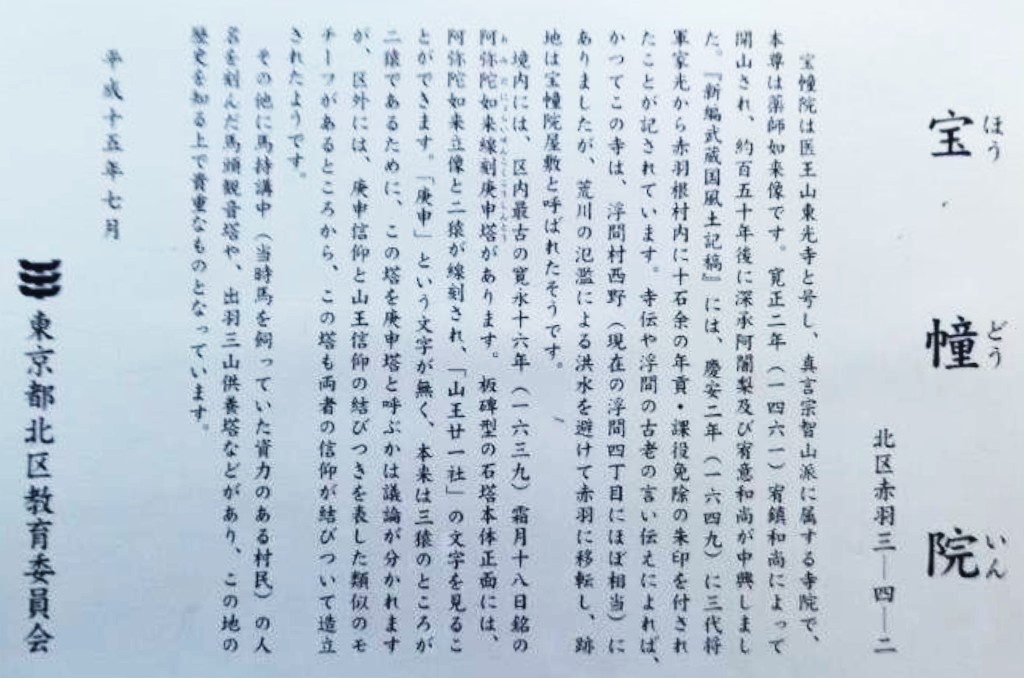 宝幢院
ほうどういん
北区赤羽三―四―二
宝幢院は医王山東光寺と号し、真言宗智山派に属する寺院で、
本尊は薬師如来像です。寛正二年（一四六一）宥鎮和尚によって
開山され、約百五十年後に深承阿闍梨及び宥意和尚が中興しまし
た。『新編武蔵国風土記稿』には、慶安二年（一六四九）に三代将
軍家光から赤羽根村内に十石余の年貢・課役免除の朱印を付され
たことが記されています。寺伝や浮間の古老の言い伝えによれば、
かつてこの寺は、浮間村西野（現在の浮間四丁目にほぼ相当）に
ありましたが、荒川の氾濫による洪水を避けて赤羽に移転し、跡
地は宝幢院屋敷と呼ばれたそうです。
境内には、区内最古の寛永十六年（一六三九）霜月十八日銘の
阿弥陀如来線刻庚申塔があります。板碑型の石塔本体正面には、
あみだにょらいせんこくこうしんとう
阿弥陀如来立像と二猿が線刻され、「山王廿一社」の文字を見るこ
とができます。「庚申」という文字が無く、本来は三猿のところが
二猿であるために、この塔を庚申塔と呼ぶかは議論が分かれます
が、区外には、庚申信仰と山王信仰の結びつきを表した類似のモ
チーフがあるところから、この塔も両者の信仰が結びついて造立
されたようです。
その他に馬持講中（当時馬を飼っていた資力のある村民）の人
名を刻んだ馬頭観音塔や、出羽三山供養塔などがあり、この地の
歴史を知る上で貴重なものとなっています。
平成十五年七月
東京都北区教育委員会